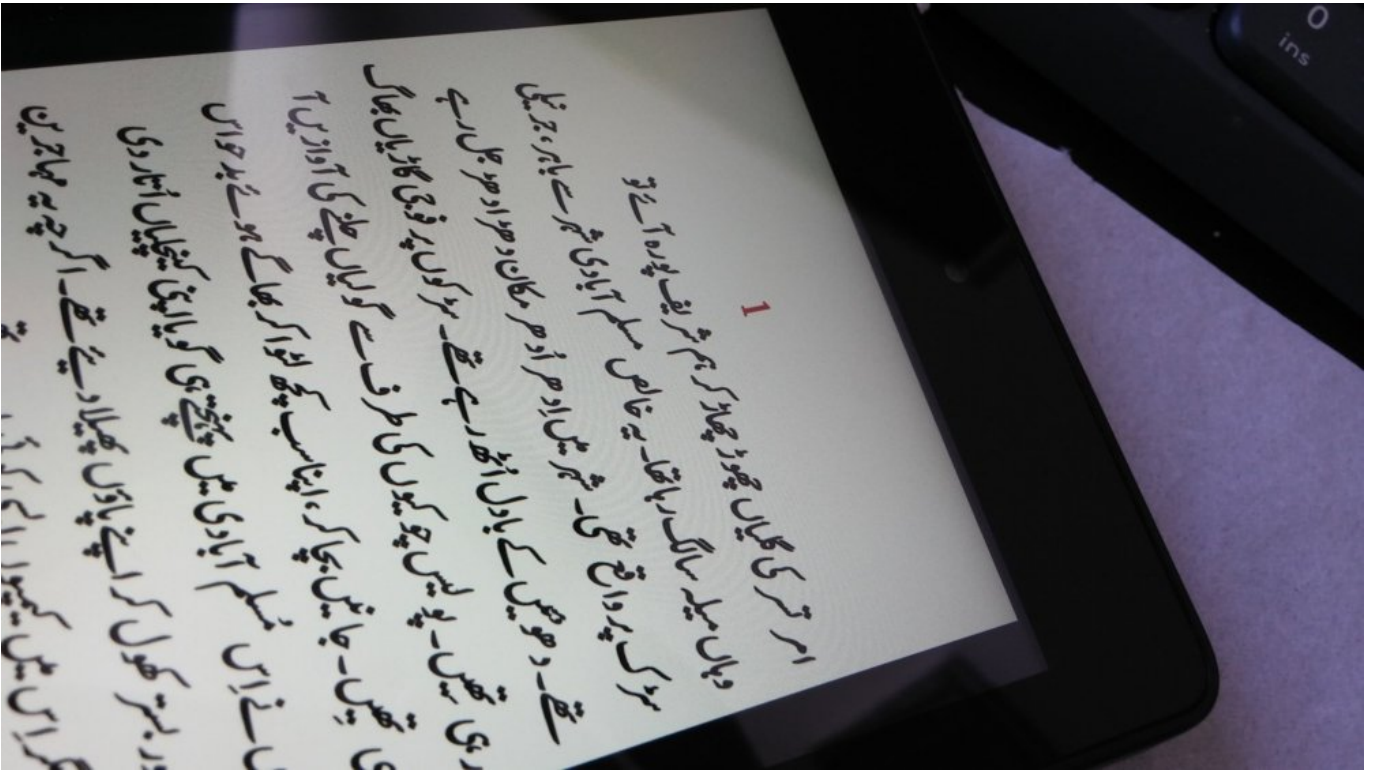 0
ins
1
امرتسر کی گلیاں چھوڑ چھاڑ کر ہم شریف پورہ آئے تو
وہاں میلہ سا لگ رہا تھا۔ یہ خالص مسلم آبادی شہر سے باہر، جرنیلی
سڑک پر واقع تھی۔ شہر میں اِدھر اُدھر مکان دھڑا دھڑ جل رہے
تھے۔ دھوئیں کے بادل اُٹھ رہے تھے۔ سڑکوں پر فوجی گاڑیاں بھاگ
رہی تھیں۔ پولیس چوکیوں کی طرف سے گولیاں چلنے کی آوازیں آ
تھیں۔ جانیں بچا کر، اپنا سب کچھ لٹوا کر بھاگے ہوئے بدحواس
نے اِس مُسلم آبادی میں پہنچتے ہی گویا اپنی کینچلیاں اُتار دی
بستر کھول کر اپنے پاؤں پھیلا دیئے تھے۔ اگرچہ یہ مہاجرین
اِس میں